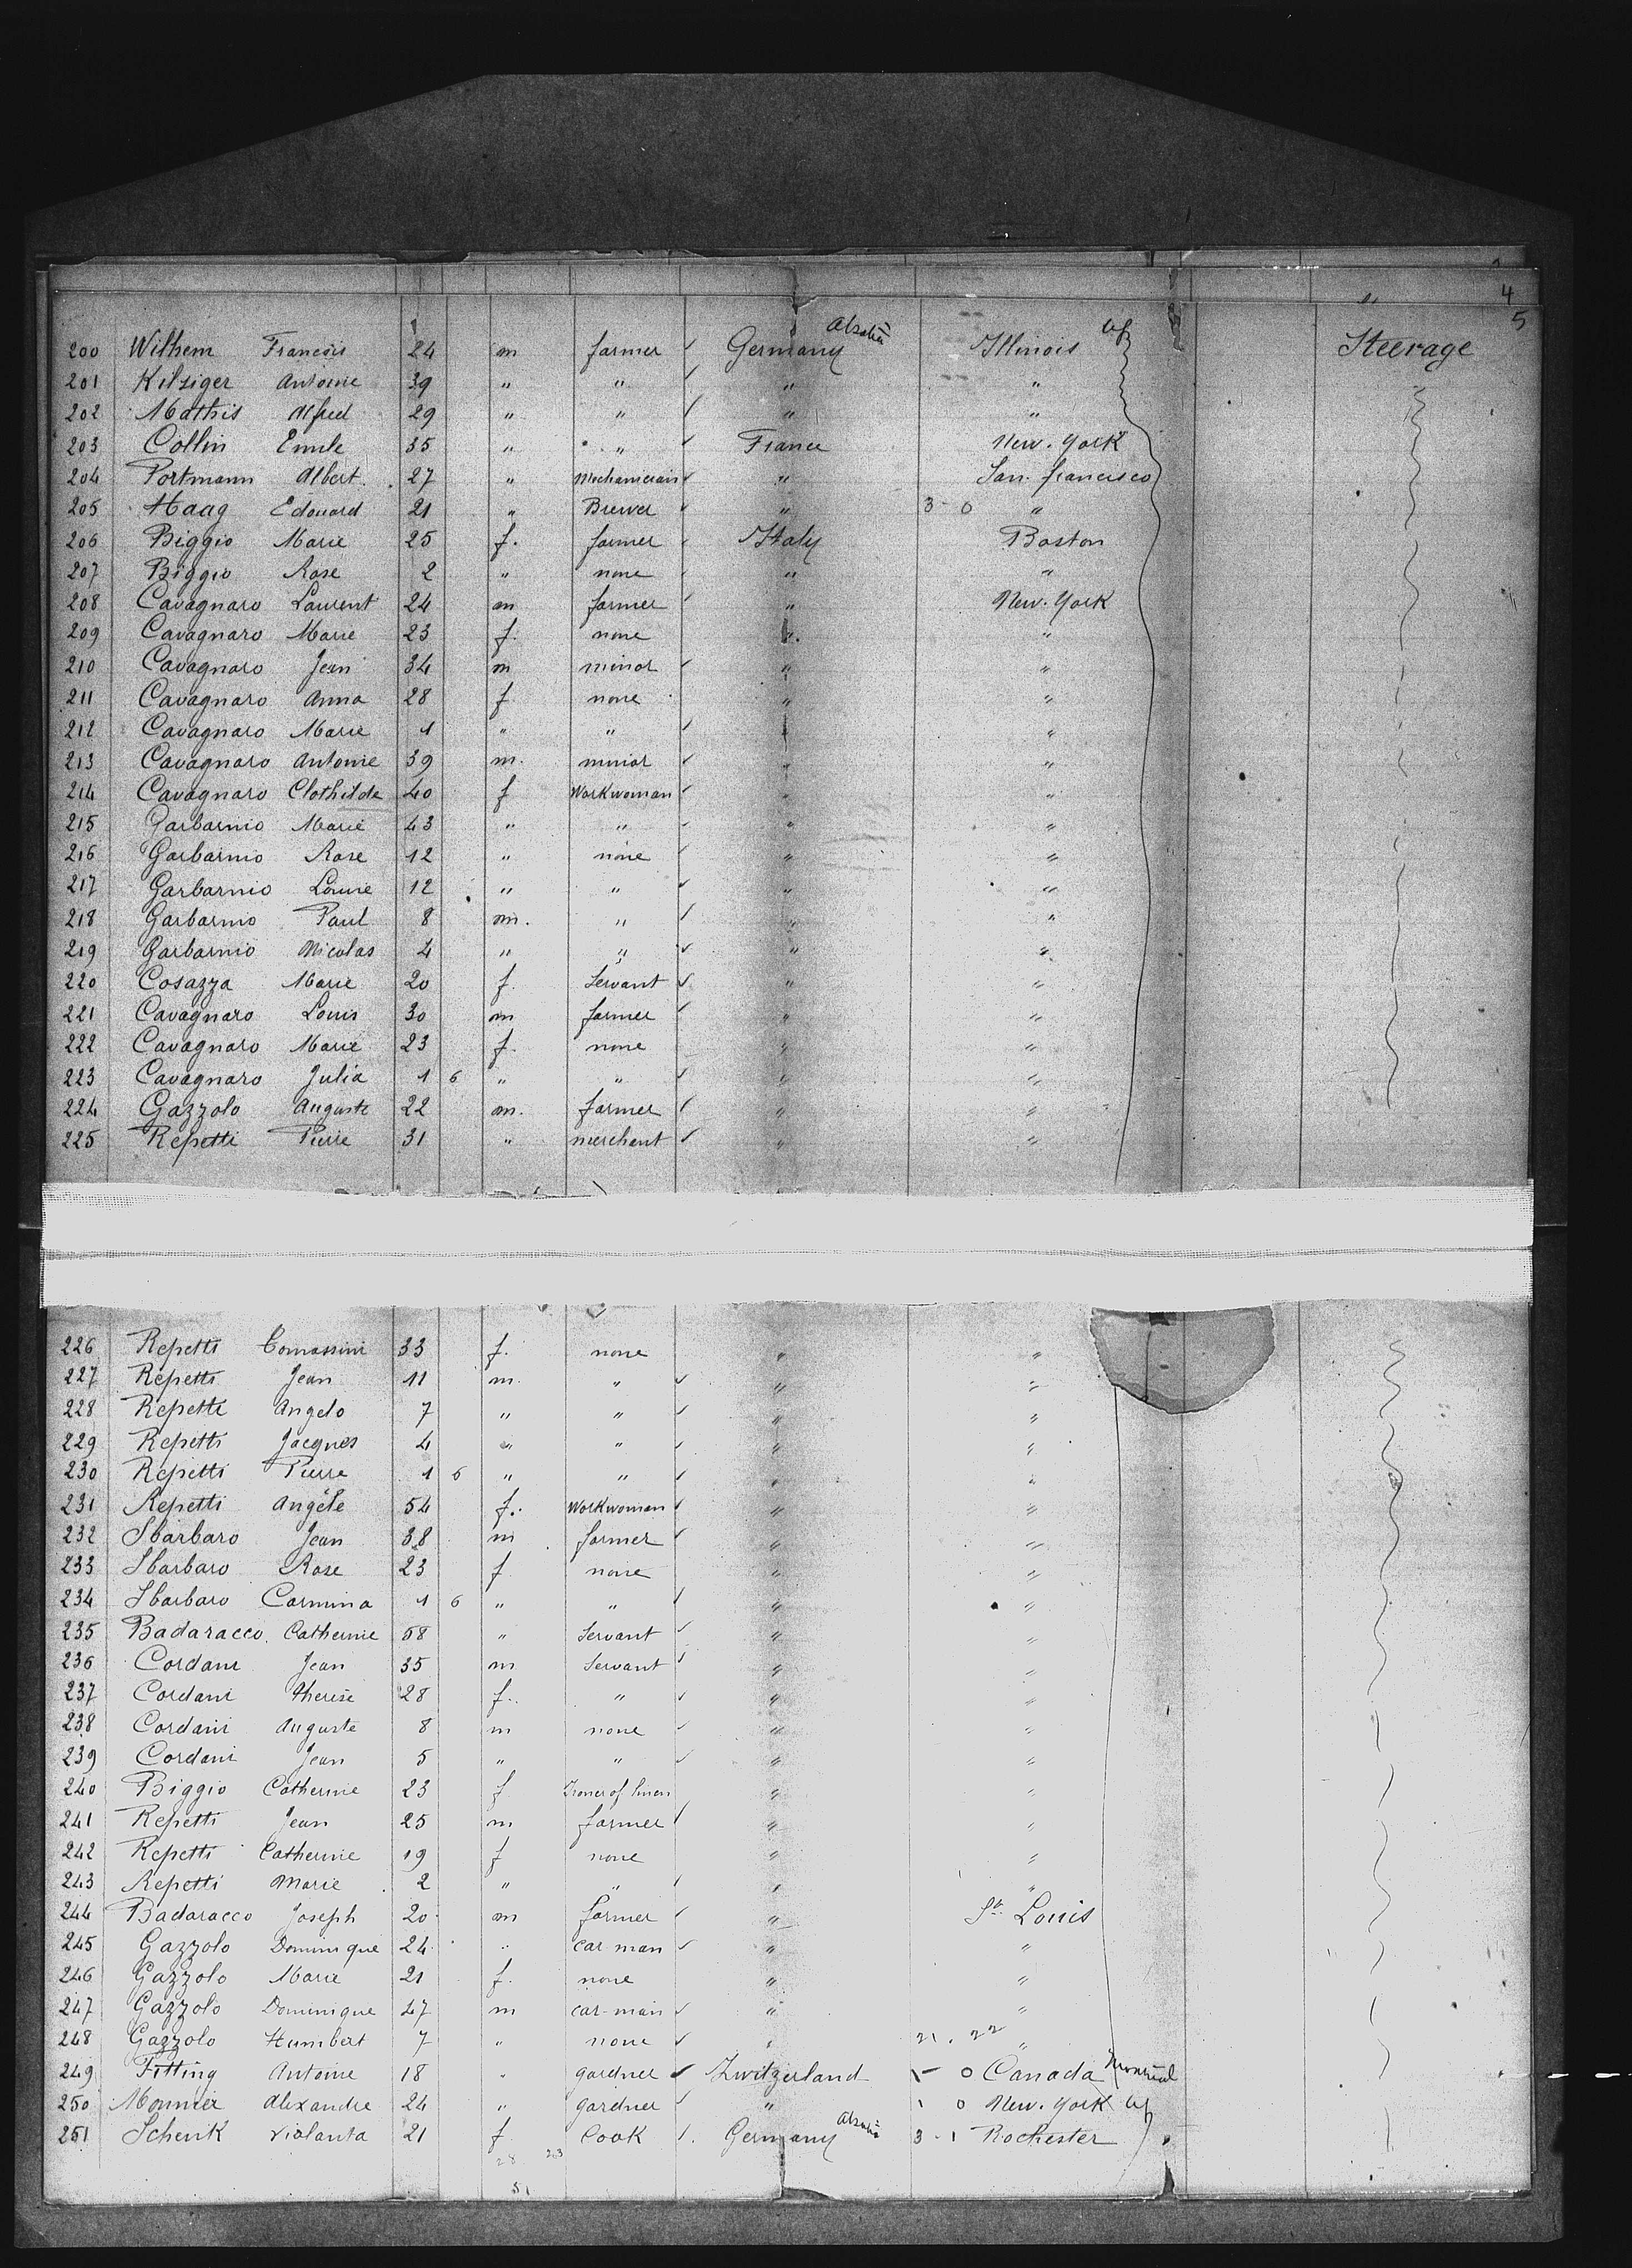 4
5
200 Wilhem Francois 24 m farmer ✓ Germany Alsatia Illinois Steerage
201 Kilsiger Antoine 39 " " ✓ " "
202 Mathis Alfred 29 " " ✓ " "
203 Collin Emile 35 " " ✓ France New-York
204 Portmann Albert 27 " Mechanician ✓ " San-francisco
205 Haag Edouard 21 " Brewer ✓ " 3-0 "
206 Biggio Marie 25 f. farmer ✓ Italy Boston
207 Biggio Rose 2 " none ✓ " "
208 Cavagnaro Laurent 24 m farmer ✓ " New-York
209 Cavagnaro Marie 23 f. none " "
210 Cavagnaro Jean 34 m minor ✓ " "
211 Cavagnaro Anna 28 f none " "
212 Cavagnaro Marie 1 " " ✓ " "
213 Cavagnaro Antoine 39 m. minor ✓ " "
214 Cavagnaro Clothilde 40 f Workwoman ✓ " "
215 Garbarnio Marie 43 " " ✓ " "
216 Garbarnio Rose 12 " none ✓ " "
217 Garbarnio Louise 12 " " ✓ " "
218 Garbarnio Paul 8 m. " ✓ " "
219 Garbarnio Nicolas 4 " " ✓ " "
220 Cosazza Marie 20 f. Servant ✓ " "
221 Cavagnaro Louis 30 m farmer ✓ " "
222 Cavagnaro Marie 23 f. none " "
223 Cavagnaro Julia 1 6 " " ✓ " "
224 Gazzolo Auguste 22 m. farmer ✓ " "
225 Repetti Pierre 31 " merchant ✓ " "
226 Repetti 33 f. none " "
227 Repetti Jean 11 m. " ✓ " "
228 Repetti Angelo 7 " " ✓ " "
229 Repetti Jacques 4 " " ✓ " "
230 Repetti Pierre 1 6 " " ✓ " "
231 Repetti Angèle 54 f. Workwoman ✓ " "
232 Sbarbaro Jean 38 m farmer ✓ " "
233 Sbarbaro Rose 23 f none " "
234 Sbarbaro Carmina 1 6 " " ✓ " "
235 Badaracco Catherine 58 " Servant ✓ " "
236 Cordani Jean 35 m Servant ✓ " "
237 Cordani therese 28 f. " ✓ " "
238 Cordani Auguste 8 m none ✓ " "
239 Cordani Jean 5 " " ✓ " "
240 Biggio Catherine 23 f Ironer of linen " "
241 Repetti Jean 25 m farmer ✓ " "
242 Repetti Catherine 19 f none " "
243 Repetti Marie 2 " " ✓ " "
244 Badaracco Joseph 20 m farmer ✓ " St. Louis
245 Gazzolo Dominique 24 " car man ✓ " "
246 Gazzolo Marie 21 f. none " "
247 Gazzolo Dominique 47 m car-man ✓ " "
248 Gazzolo Humbert 7 " none ✓ " 21.22 "
249 Fitting Antoine 18 " gardner ✓ Zwitzerland 1-0 Canada Montreal
250 Monnier Alexandre 24 " gardner ✓ " 1 0 New-York
251 Schenk Violanta 21 f Cook ✓ Germany Alsatia 3-1 Rochester
28 23
51